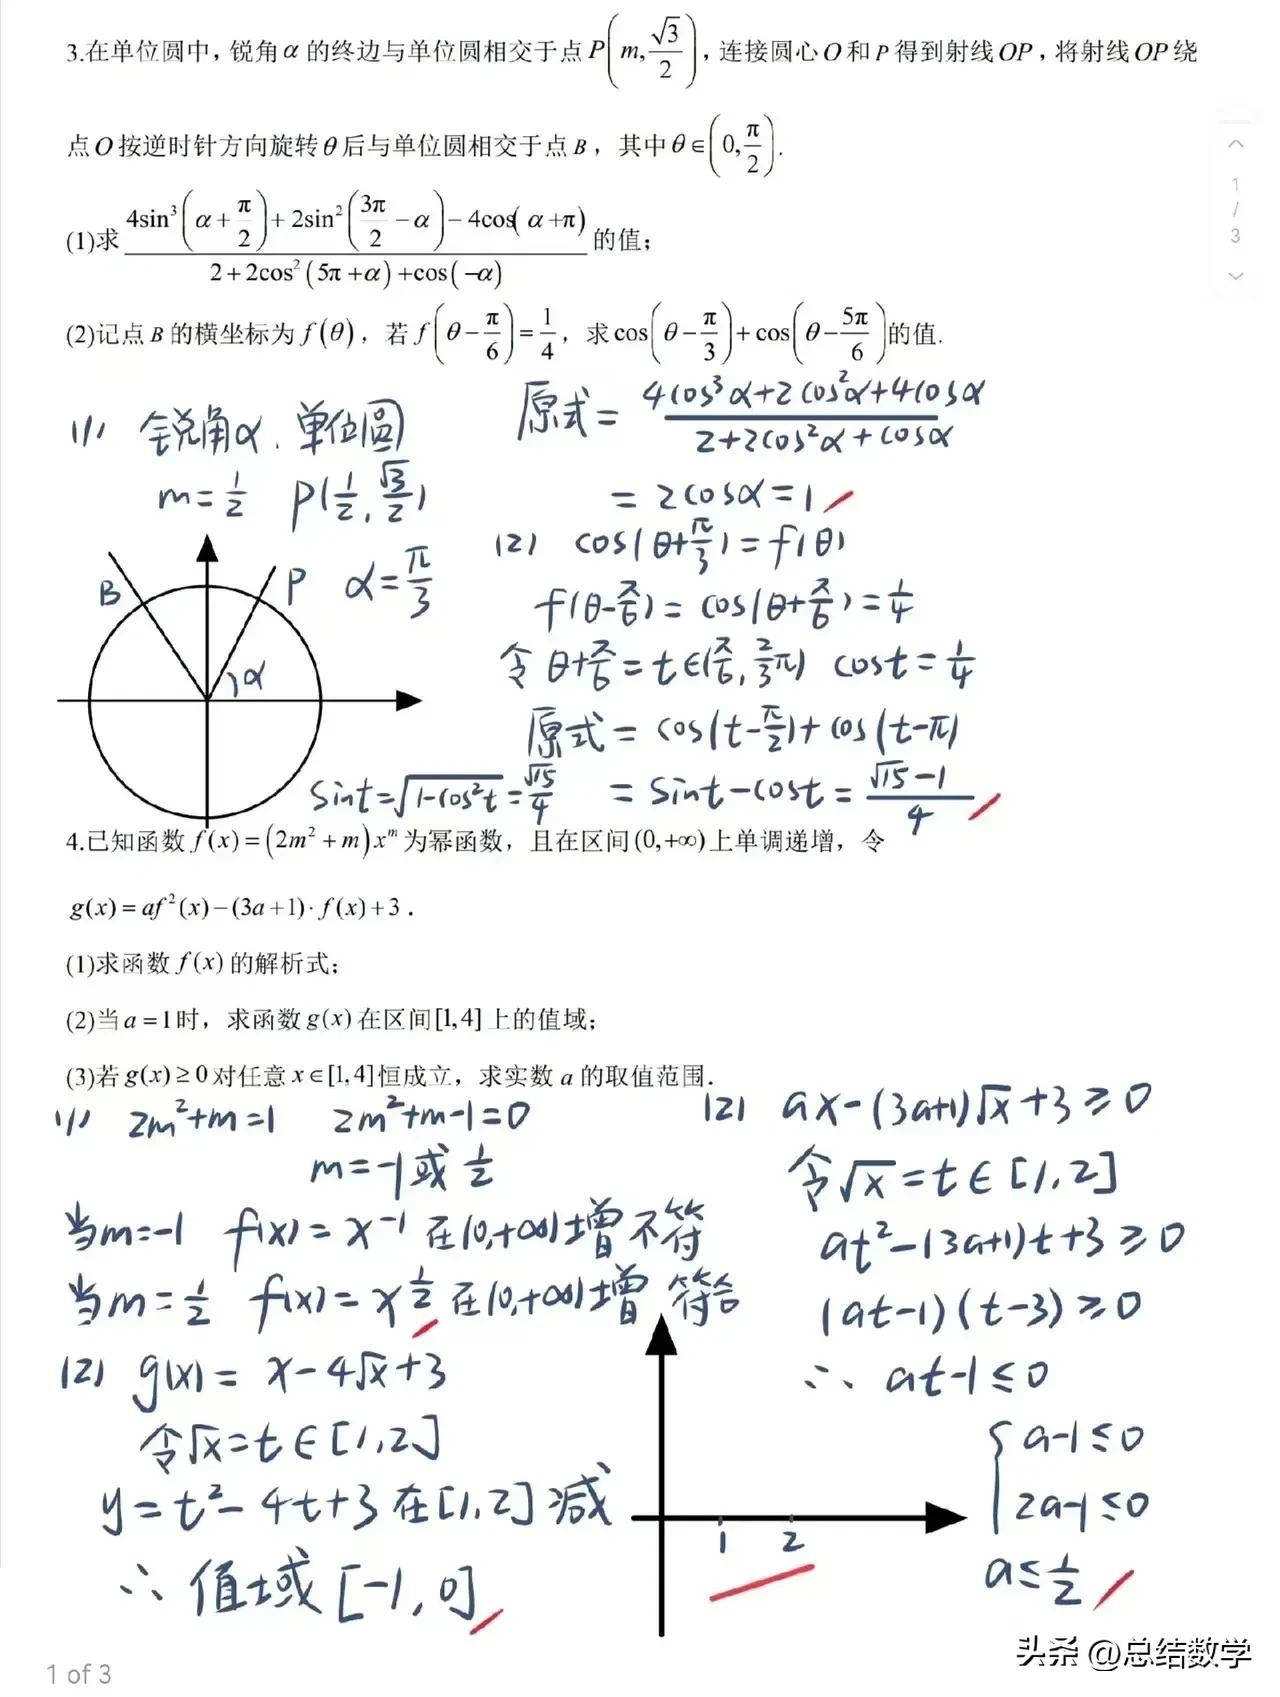 3.在单位圆中，锐角α的终边与单位圆相交于点P(m,√3/2)，连接圆心O和P得到射线OP，将射线OP绕
点O按逆时针方向旋转θ后与单位圆相交于点B，其中θ∈(0,π/2).
(1)求 (4sin³(α+π/2)+2sin²(3π/2-α)-4cos(α+π))/(2+2cos²(5π+α)+cos(-α)) 的值；
(2)记点B的横坐标为f(θ)，若f(θ-π/6)=1/4，求cos(θ-π/3)+cos(θ-5π/6)的值.
(1) 锐角α.单位圆
m=1/2 P(1/2,√3/2)
α=π/3
B P α
原式=(4cos³α+2cos²α+4cosα)/(2+2cos²α+cosα)
=2cosα=1
(2) cos(θ+π/3)=f(θ)
f(θ-π/6)=cos(θ+π/6)=1/4
令θ+π/6=t∈(π/6,2/3π) cost=1/4
原式=cos(t-π/2)+cos(t-π)
sint=√(1-cos²t)=√15/4 =sint-cost=(√15-1)/4
4.已知函数f(x)=(2m²+m)x^m为幂函数，且在区间(0,+∞)上单调递增，令
g(x)=af²(x)-(3a+1)·f(x)+3.
(1)求函数f(x)的解析式；
(2)当a=1时，求函数g(x)在区间[1,4]上的值域；
(3)若g(x)≥0对任意x∈[1,4]恒成立，求实数a的取值范围.
(1) 2m²+m=1 2m²+m-1=0
m=-1或1/2
当m=-1 f(x)=x⁻¹在(0,+∞)增不符
当m=1/2 f(x)=x^(1/2)在(0,+∞)增 符合
(2) g(x)=x-4√x+3
令√x=t∈[1,2]
y=t²-4t+3在[1,2]减
∴值域[-1,0]
(2) ax-(3a+1)√x+3≥0
令√x=t∈[1,2]
at²-(3a+1)t+3≥0
(at-1)(t-3)≥0
∴at-1≤0
{a-1≤0
2a-1≤0
a≤1/2
1 2
1
/
3
1 of 3
头条 @总结数学